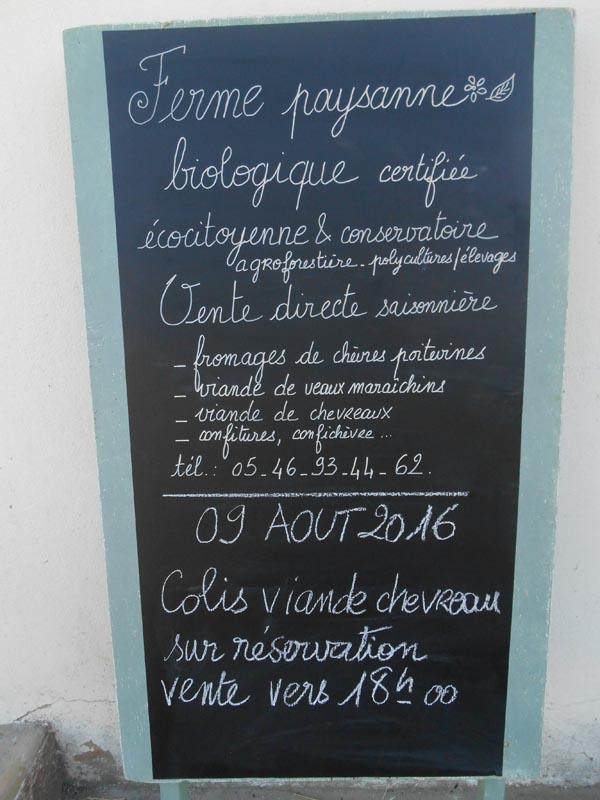 Ferme paysanne
biologique certifiée
écocitoyenne & conservatoire
agroforestière - polycultures/élevages
Vente directe saisonnière
_ fromages de chèvres poitevines
_ viande de veaux maraichins
_ viande de chevreaux
_ confitures, confichèvre...
tél.: 05_46_93_44_62.
09 AOUT 2016
Colis viande chevreau
sur réservation
vente vers 18h00